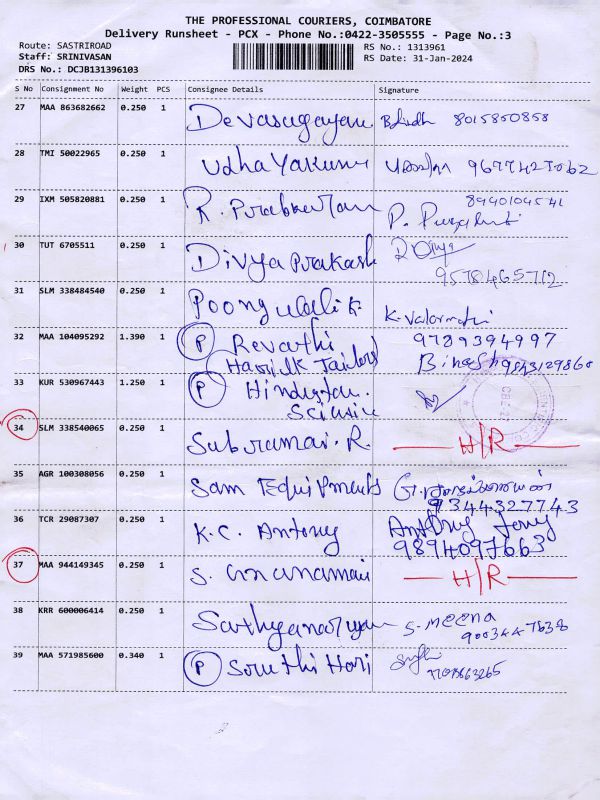 THE PROFESSIONAL COURIERS, COIMBATORE
Delivery Runsheet - PCX - Phone No.:0422-3505555 - Page No.:3
Route: SASTRIROAD RS No.: 1313961
Staff: SRINIVASAN RS Date: 31-Jan-2024
DRS No.: DCJB131396103
S No Consignment No Weight PCS Consignee Details Signature
27 MAA 863682662 0.250 1 Devasugayam 8015850858
28 TMI 50022965 0.250 1 Udhayakumar
29 IXM 505820881 0.250 1 R. Prabhakaran
30 TUT 6705511 0.250 1 Divya Prakash
31 SLM 338484540 0.250 1 Poongulali K. K. Valarmathi
9789394997
32 MAA 104095292 1.390 1 P Revathi
33 KUR 530967443 1.250 1 P Hindustan
34 SLM 338540065 0.250 1 Subramai. R. H/R
35 AGR 100308056 0.250 1 Sam Equipments
9344327743
36 TCR 29087307 0.250 1 K.C. Antony Antony
9894097663
37 MAA 944149345 0.250 1 S. H/R
38 KRR 600006414 0.250 1 Sathyanarayan S. Meena
39 MAA 571985600 0.340 1 P Sruthi Hari